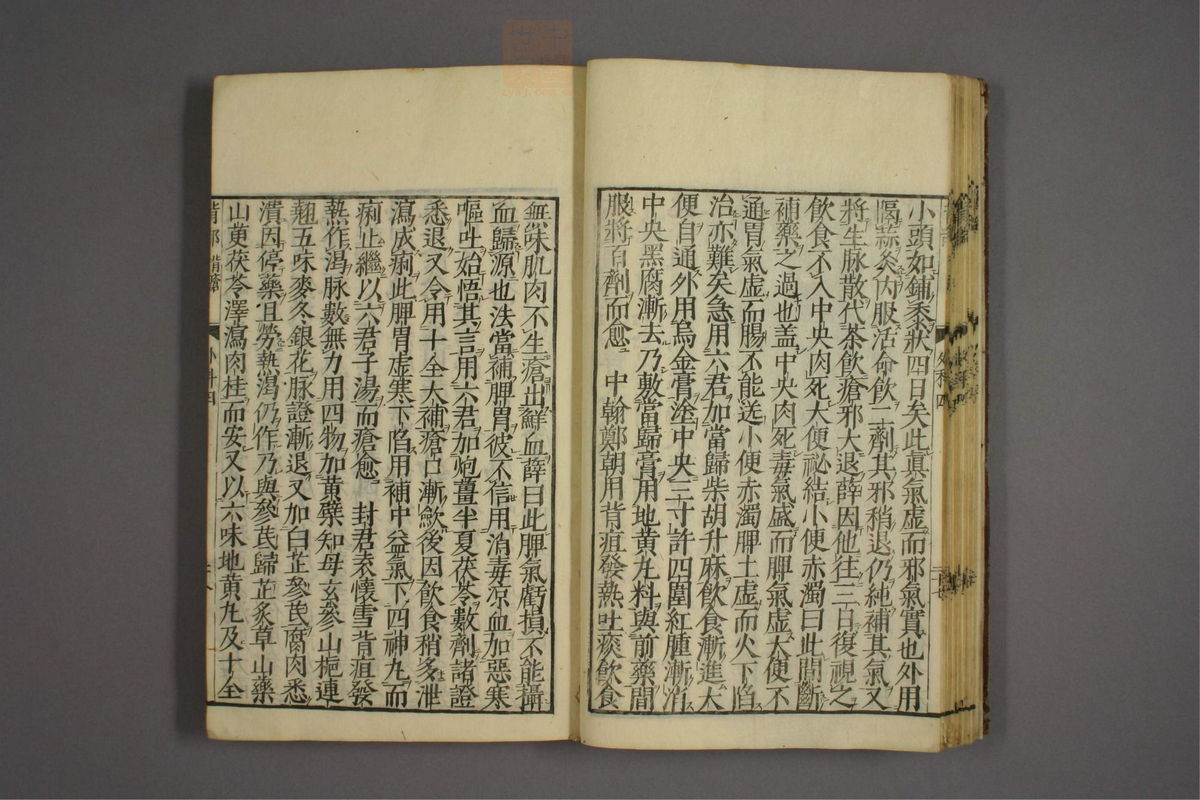 小頭如鋪黍狀四日矣此眞氣虛而邪氣實也外用
隔蒜灸内服活命飲二劑其邪稍退仍純補其氣又
將生脉散代茶飲瘡邪大退薛因他往三日復視之
飲食不入中央肉死大便祕結小便赤濁曰此間斷
補藥之過也盖中央肉死毒氣盛而脾氣虛大便不
通胃氣虛而腸不能送小便赤濁脾土虛而火下陷
治亦難矣急用六君加當歸柴胡升麻飲食漸進大
便自通外用烏金膏塗中央三寸許四圍紅腫漸消
中央黑腐漸去乃敷當歸膏用地黄丸料與前藥間
服將百劑而愈 中翰鄭朝用背疽發熱吐痰飲食
無味肌肉不生瘡出鮮血薛曰此脾氣虧損不能攝
血歸源也法當補脾胃彼不信用消毒凉血加惡寒
嘔吐始悟其言用六君加炮薑半夏茯苓數劑諸證
悉退又令用十全大補瘡口漸歛後因飲食稍多泄
瀉成痢此脾胃虚寒下陷用補中益氣下四神丸而
痢止繼以六君子湯而瘡愈 封君袁懷雪背疽發
熱作渴脉數無力用四物加黄蘗知母玄參山梔連
翹五味麥冬銀花脉證漸退又加白芷參芪腐肉悉
潰因停藥且勞熱渴仍作乃與參芪歸芷炙草山藥
山萸茯苓澤瀉肉桂而安又以六味地黄丸及十全